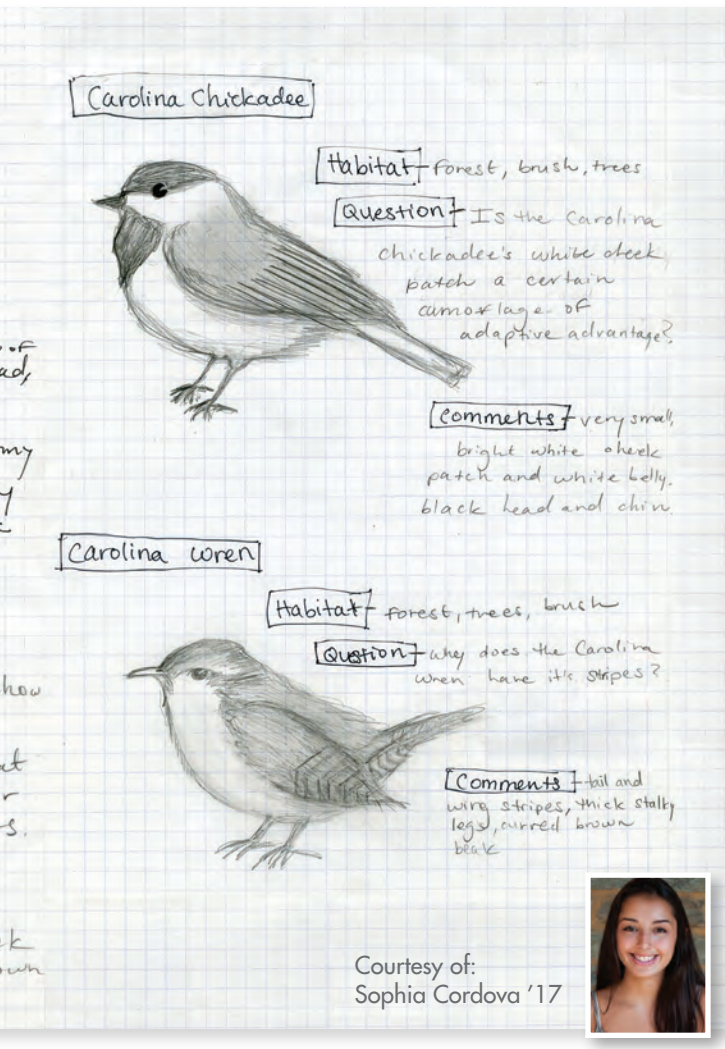 Carolina Chickadee
Habitat - forest, brush, trees
Question - Is the Carolina
chickadee's white cheek
patch a certain
camoflage of
adaptive advantage?
Comments - very small,
bright white cheek
patch and white belly.
black head and chin.
Carolina wren
Habitat - forest, trees, brush
Question - why does the Carolina
wren have it's stripes?
Comments - tail and
wing stripes, thick stalky
legs, curved brown
beak
of
my
how
Courtesy of:
Sophia Cordova '17